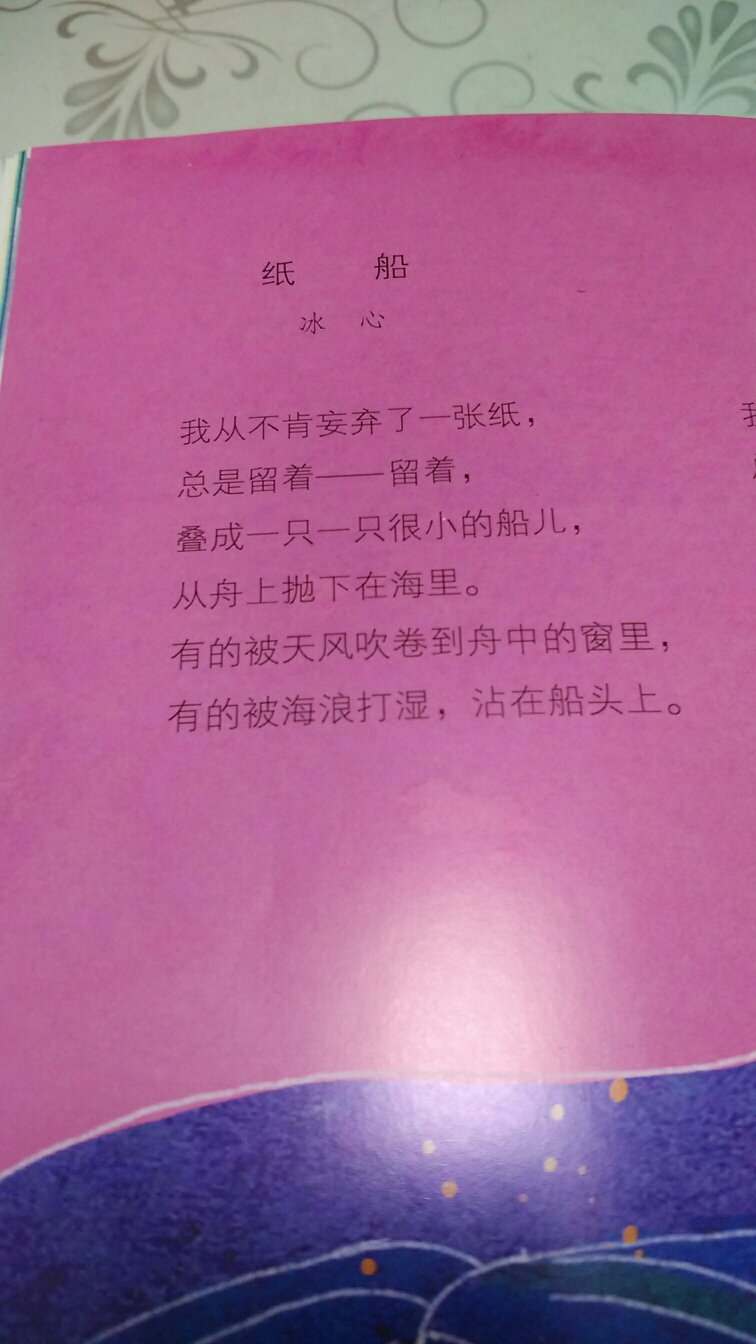 纸 船
冰 心
我从不肯妄弃了一张纸，
总是留着——留着，
叠成一只一只很小的船儿，
从舟上抛下在海里。
有的被天风吹卷到舟中的窗里，
有的被海浪打湿，沾在船头上。